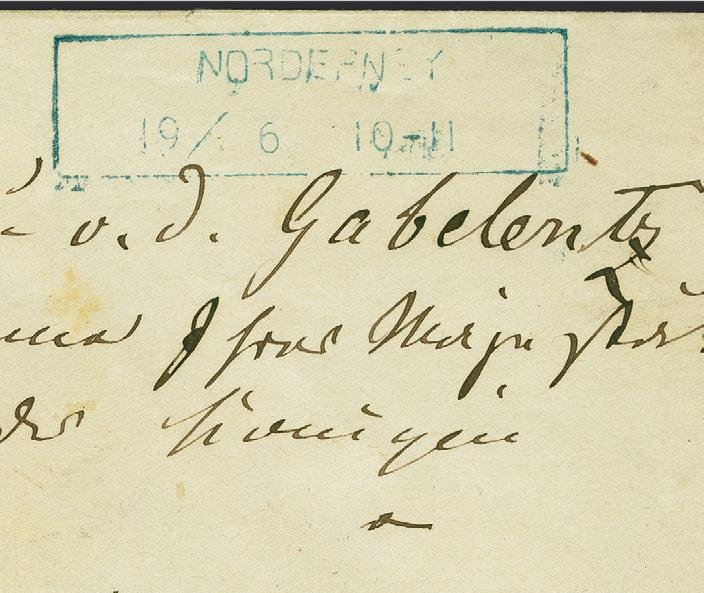 NORDERNEY
19/ 6 10-11
v. d. Gabelentz
Ihrer Majestät
der Königin